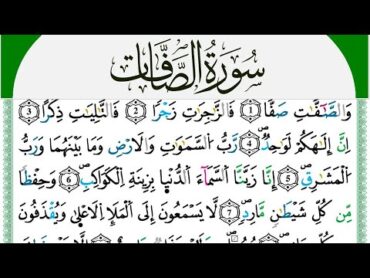 سُورَةُ الصَّافَّات
وَالصّٰٓفّٰتِ صَفًّا ۝١ فَالزّٰجِرٰتِ زَجْرًا ۝٢ فَالتّٰلِيٰتِ ذِكْرًا ۝٣
اِنَّ اِلٰهَكُمْ لَوَاحِدٌ ۝٤ رَبُّ السَّمٰوٰتِ وَالْاَرْضِ وَمَا بَيْنَهُمَا وَرَبُّ
الْمَشَارِقِ ۝٥ اِنَّا زَيَّنَّا السَّمَآءَ الدُّنْيَا بِزِيْنَةِ ࣙالْكَوَاكِبِ ۝٦ وَحِفْظًا
مِّنْ كُلِّ شَيْطٰنٍ مَّارِدٍ ۝٧ لَا يَسَّمَّعُوْنَ اِلَى الْمَلَاِ الْاَعْلٰى وَيُقْذَفُوْنَ